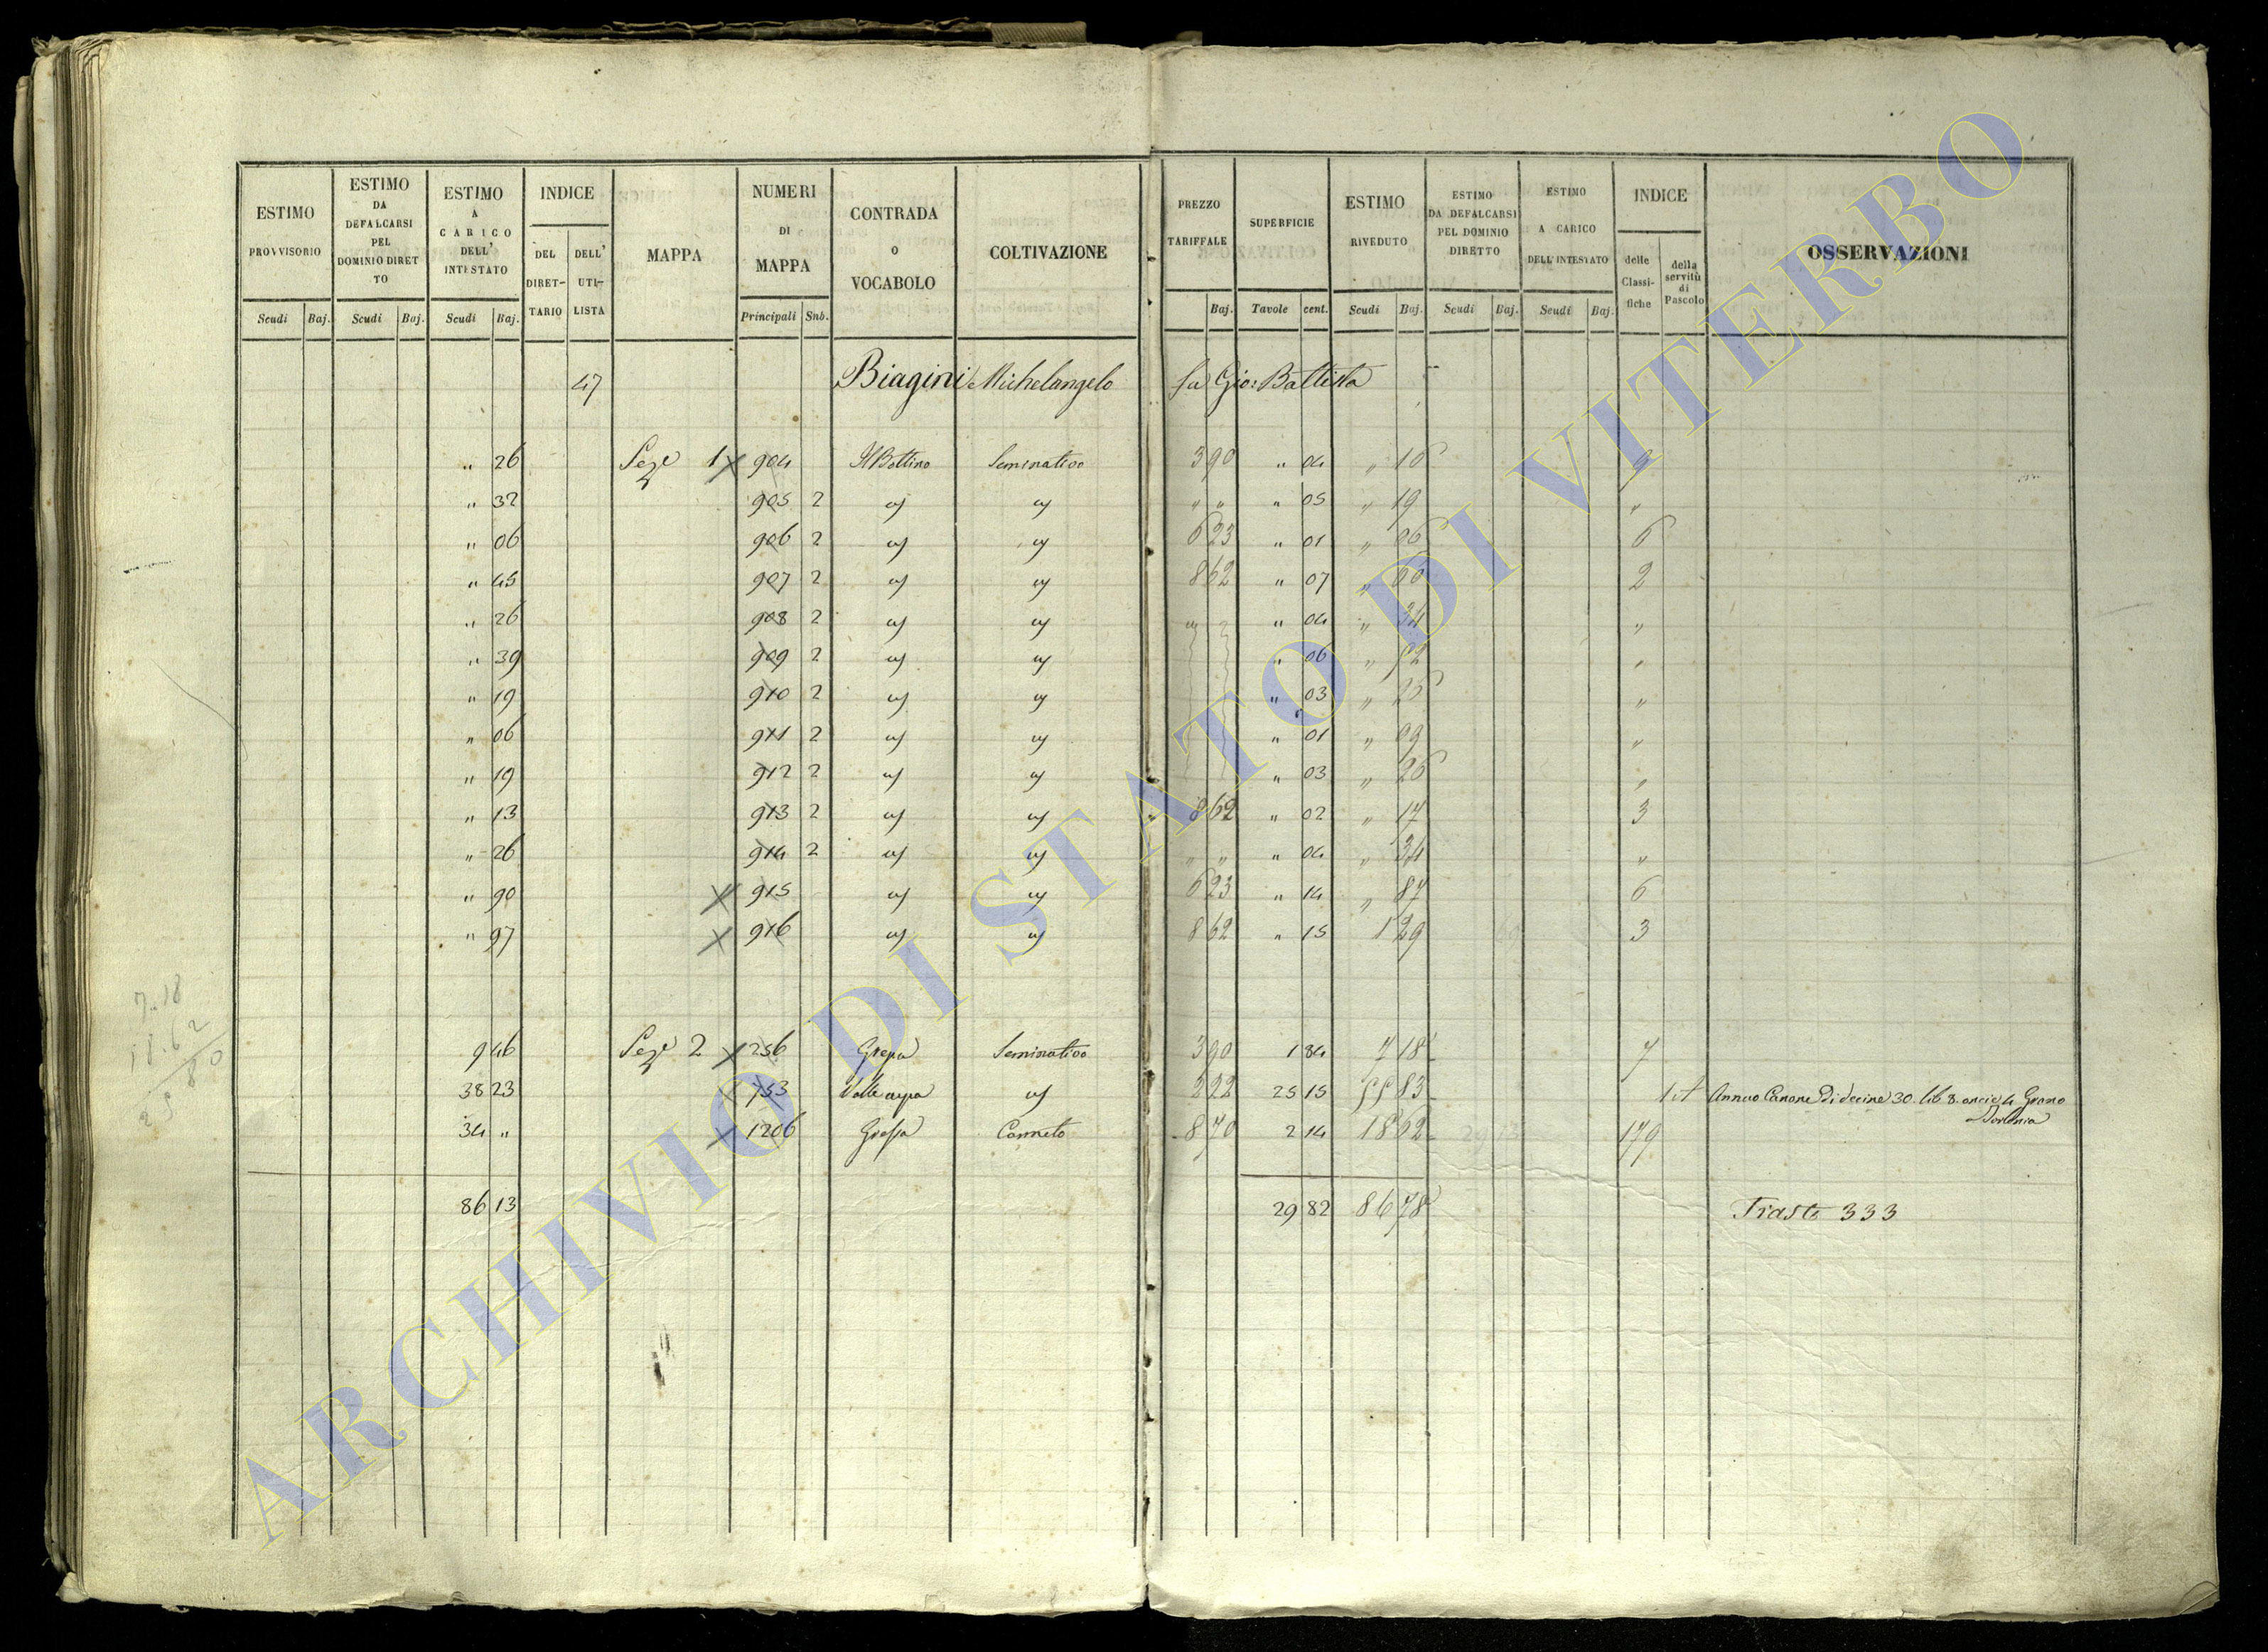 ESTIMO PROVVISORIO Scudi Baj.
ESTIMO DA DEFALCARSI PEL DOMINIO DIRETTO Scudi Baj.
ESTIMO A CARICO DELL' INTESTATO Scudi Baj.
INDICE DEL DIRET-TARIO DELL' UTI-LISTA
MAPPA
NUMERI DI MAPPA Principali Snb.
CONTRADA O VOCABOLO
COLTIVAZIONE
PREZZO TARIFFALE Baj.
SUPERFICIE Tavole cent.
ESTIMO RIVEDUTO Scudi Baj.
ESTIMO DA DEFALCARSI PEL DOMINIO DIRETTO Scudi Baj.
ESTIMO A CARICO DELL' INTESTATO Scudi Baj.
INDICE delle Classi-fiche della servitù di Pascolo
OSSERVAZIONI
47 Biagini Michelangelo fu Gio: Battista
" 26 Seze 1 904 Il Bottino Seminativo 3 90 " 04 " 16 9
" 32 905 2 " " " " " 05 " 19 "
" 06 906 2 " " 6 23 " 01 " 06 6
" 45 907 2 " " 8 62 " 07 " 60 2
" 26 908 2 " " " 04 " 34 "
" 39 909 2 " " " 06 " 52 "
" 19 910 2 " " " 03 " 26 "
" 06 911 2 " " " 01 " 09 "
" 19 912 2 " " " 03 " 26 "
" 13 913 2 " " 8 62 " 02 " 17 3
" 26 914 2 " " " " " 04 " 34 "
" 90 915 " " 6 23 " 14 " 87 6
" 97 916 " " 8 62 " 15 1 29 3
9 46 Seze 2 256 Seminativo 3 90 1 84 7 18 7
38 23 753 " 2 22 25 15 55 83 Annuo Canone Di decine 30. lib 8. oncie 4 Grano
34 " 1206 Canneto 8 70 2 14 18 62 179
86 13 29 82 86 78 333
7.18
ARCHIVIO DI STATO DI VITERBO